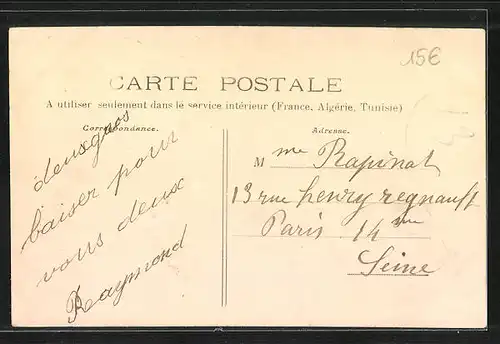 15€
CARTE POSTALE
A utiliser seulement dans le service intérieur (France, Algérie, Tunisie)
Correspondance.
deuxgros
baiser pour
vous deux
Raymond
Adresse.
Mme Rapinat
13 rue henry regnault
Paris 14me
Seine